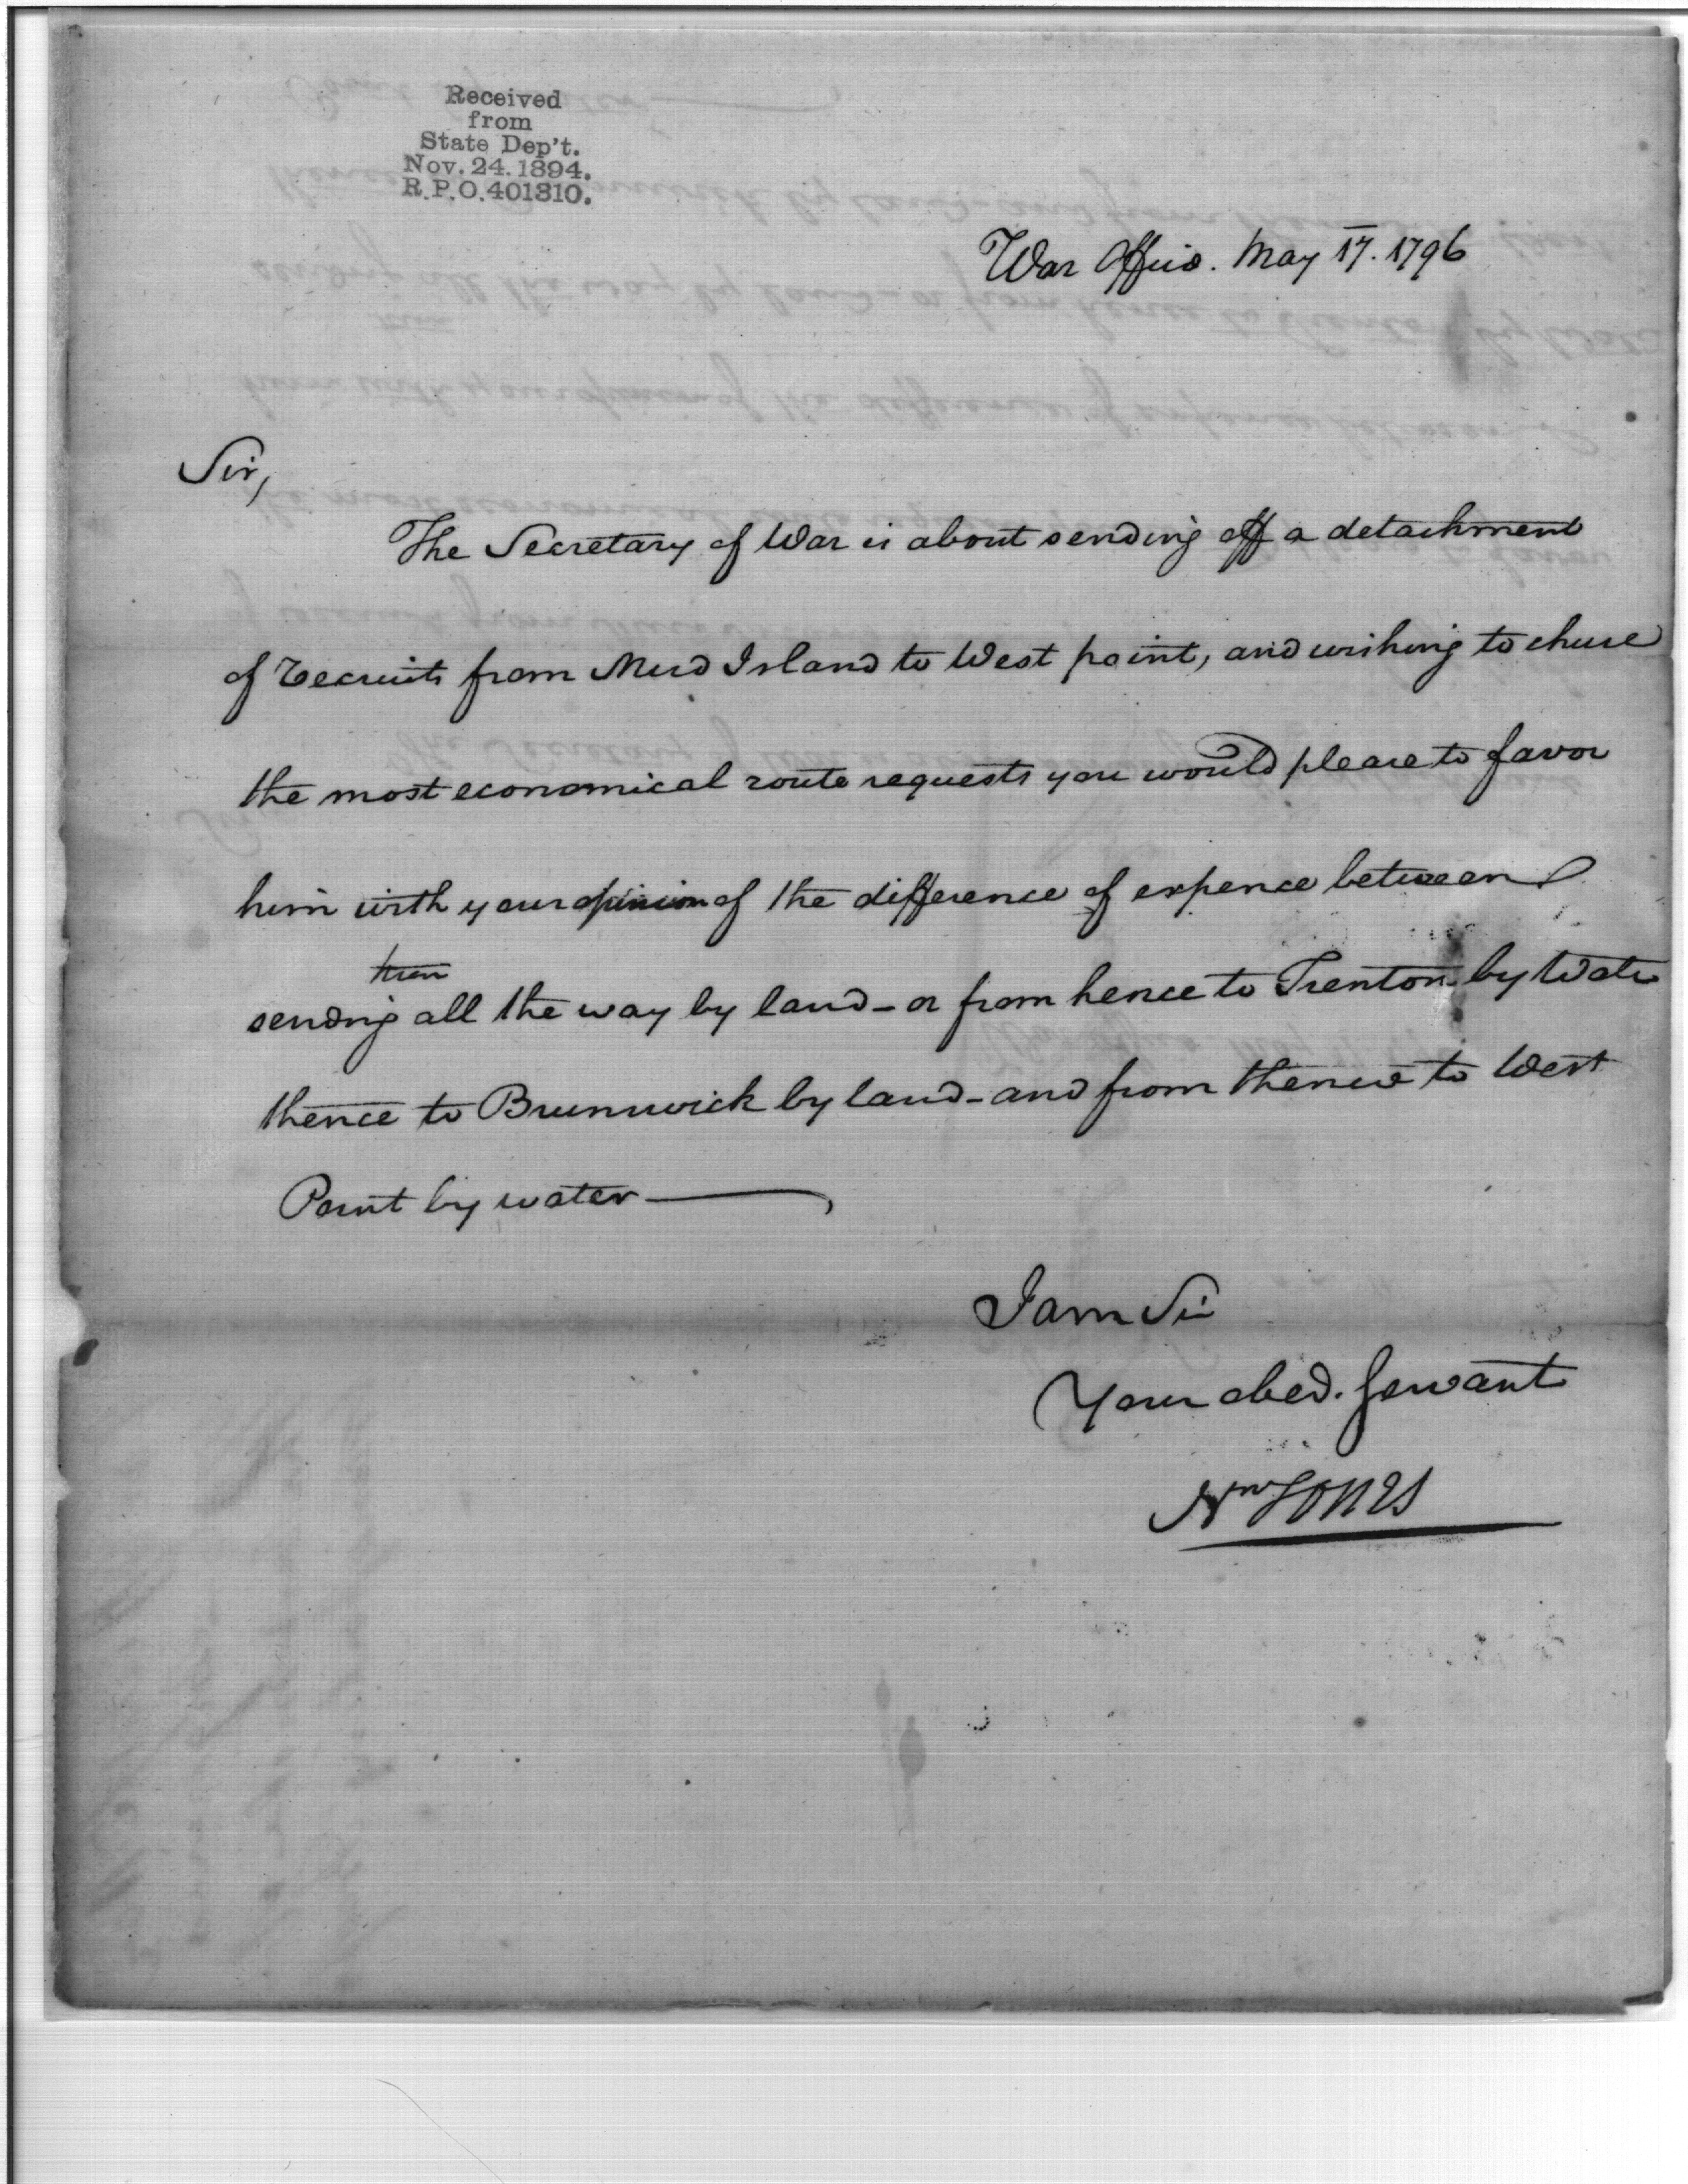 Received
from
State Dep't.
Nov. 24. 1894.
R.P.O. 401310.
War Office. May 17. 1796
Sir,
The Secretary of War is about sending off a detachment
of recruits from Mud Island to West point, and wishing to chuse
the most economical route requests you would please to favor
him with your opinion of the difference of expence between
them
sending all the way by land - or from hence to Trenton by Water
thence to Brunswick by land - and from thence to West
Point by water
I am Sir
Your obed. Servant
Nn Jones